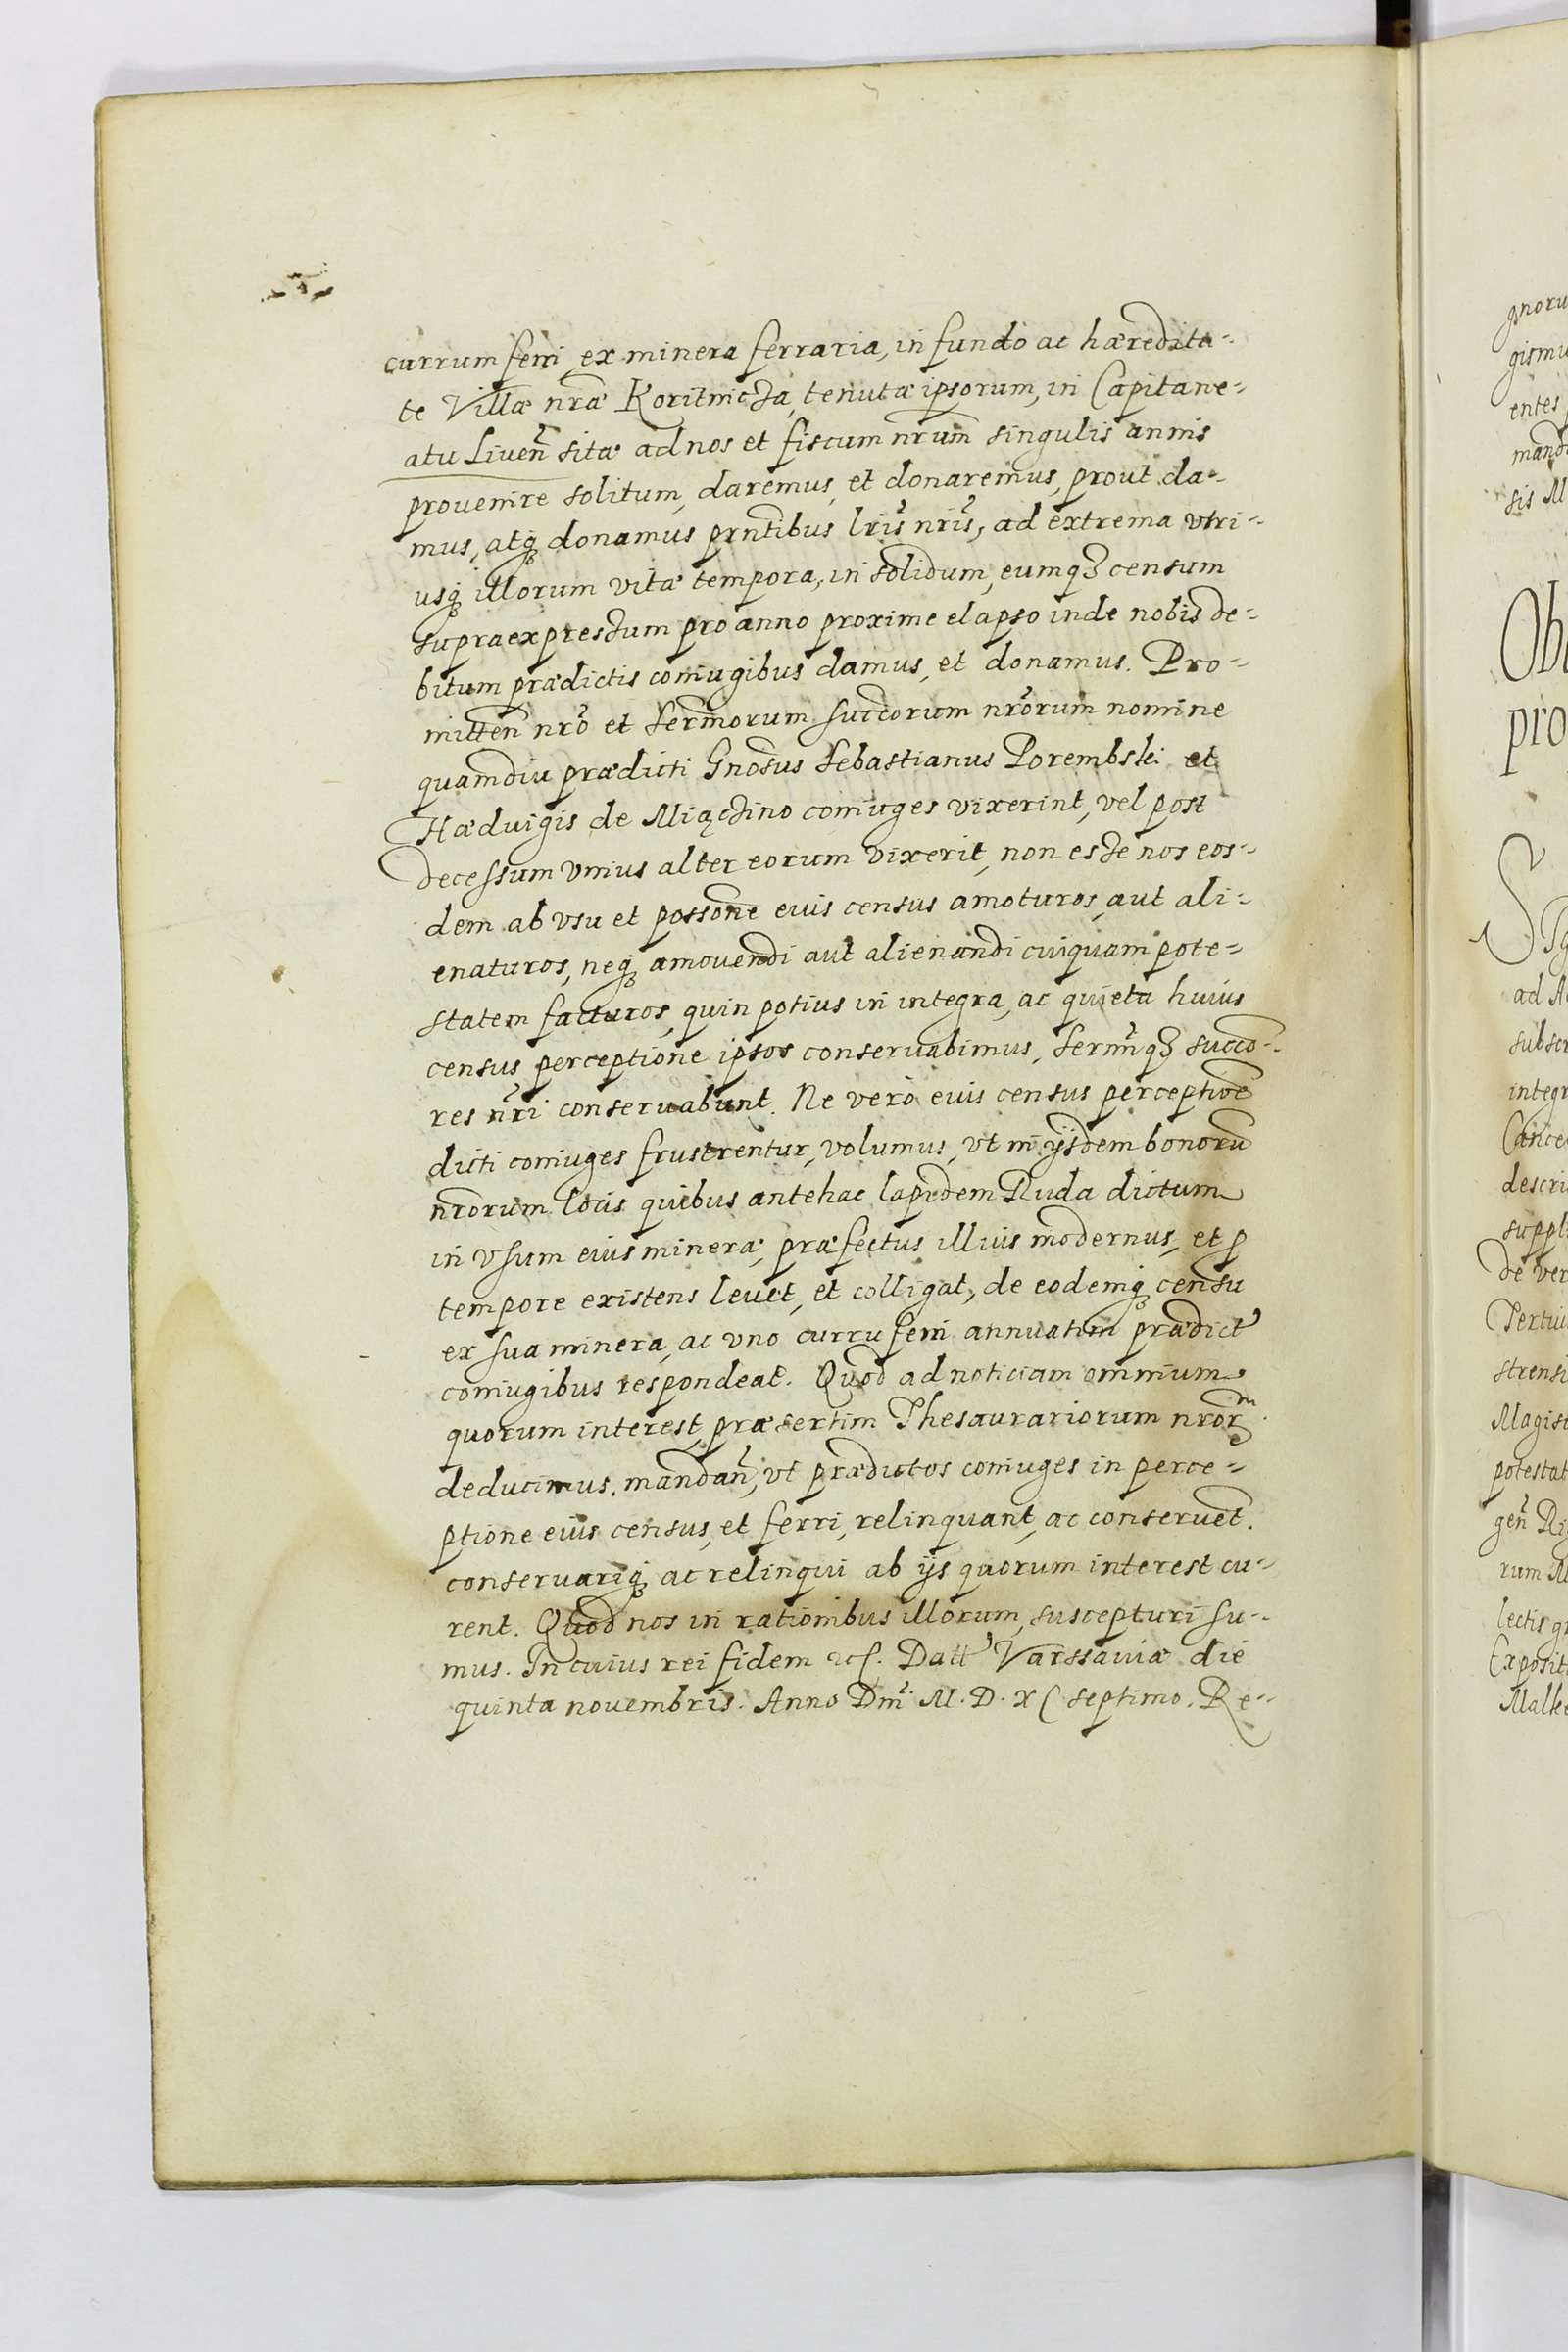 currum ferri ex minera ferraria, in fundo ac hæredita-
te Villæ nræ Koritnicza, tenutæ ipsorum, in Capitane-
atu Liuen sitæ ad nos et fiscum nrum singulis annis
prouenire solitum, daremus, et donaremus, prout da-
mus, atq donamus prntibus lris nris, ad extrema vtri-
usq illorum vitæ tempora, in solidum, eumq3 censum
supraexpressum pro anno proxime elapso inde nobis de-
bitum prædictis coniugibus damus, et donamus. Pro-
mitten nro et sermorum succorum nrorum nomine
quamdiu prædicti Gnosus Sebastianus Porembski et
Hæduigis de Miączino coniuges vixerint, vel post
decessum vnius alter eorum vixerit, non esse nos eos-
dem ab vsu et possone eius census amoturos, aut ali-
enaturos, neq amouendi aut alienandi cuiquam pote-
statem facturos, quin potius in integra, ac quieta huius
census perceptione ipsos conseruabimus, sermq3 succo-
res nri conseruabunt. Ne vero eius census perceptioe
dicti coniuges frustrentur, volumus, vt in ijsdem bonoru
nrorum locis quibus antehac lapidem Ruda dictum
in vsum eius mineræ, præfectus illius modernus, et p
tempore existens leuet, et colligat, de eodemq censu
ex sua minera, ac vno curru ferri annuatim prædict
coniugibus respondeat. Quod ad noticiam omnium
quorum interest, præsertim Thesaurariorum nrorm
deducimus. mandan, vt prædictos coniuges in perce-
ptione eius census, et ferri, relinquant, ac conseruet.
conseruariq ac relinqui ab ijs quorum interest cu-
rent. Quod nos in rationibus illorum, suscepturi su-
mus. In cuius rei fidem etc. Datt Varssauiæ die
quinta nouembris. Anno Dni. M. D. XC septimo. Re-